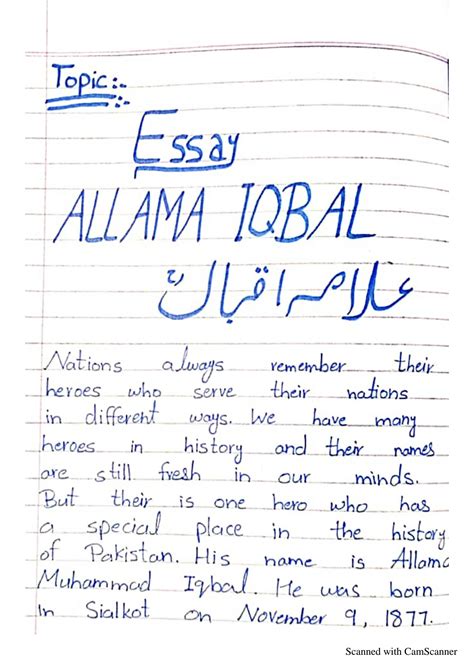 Topic:-
Essay
ALLAMA IQBAL
علامہ اقبالؒ
Nations always remember their
heroes who serve their nations
in different ways. We have many
heroes in history and their names
are still fresh in our minds.
But their is one hero who has
a special place in the history
of Pakistan. His name is Allama
Muhammad Iqbal. He was born
in Sialkot on November 9, 1877.
Scanned with CamScanner